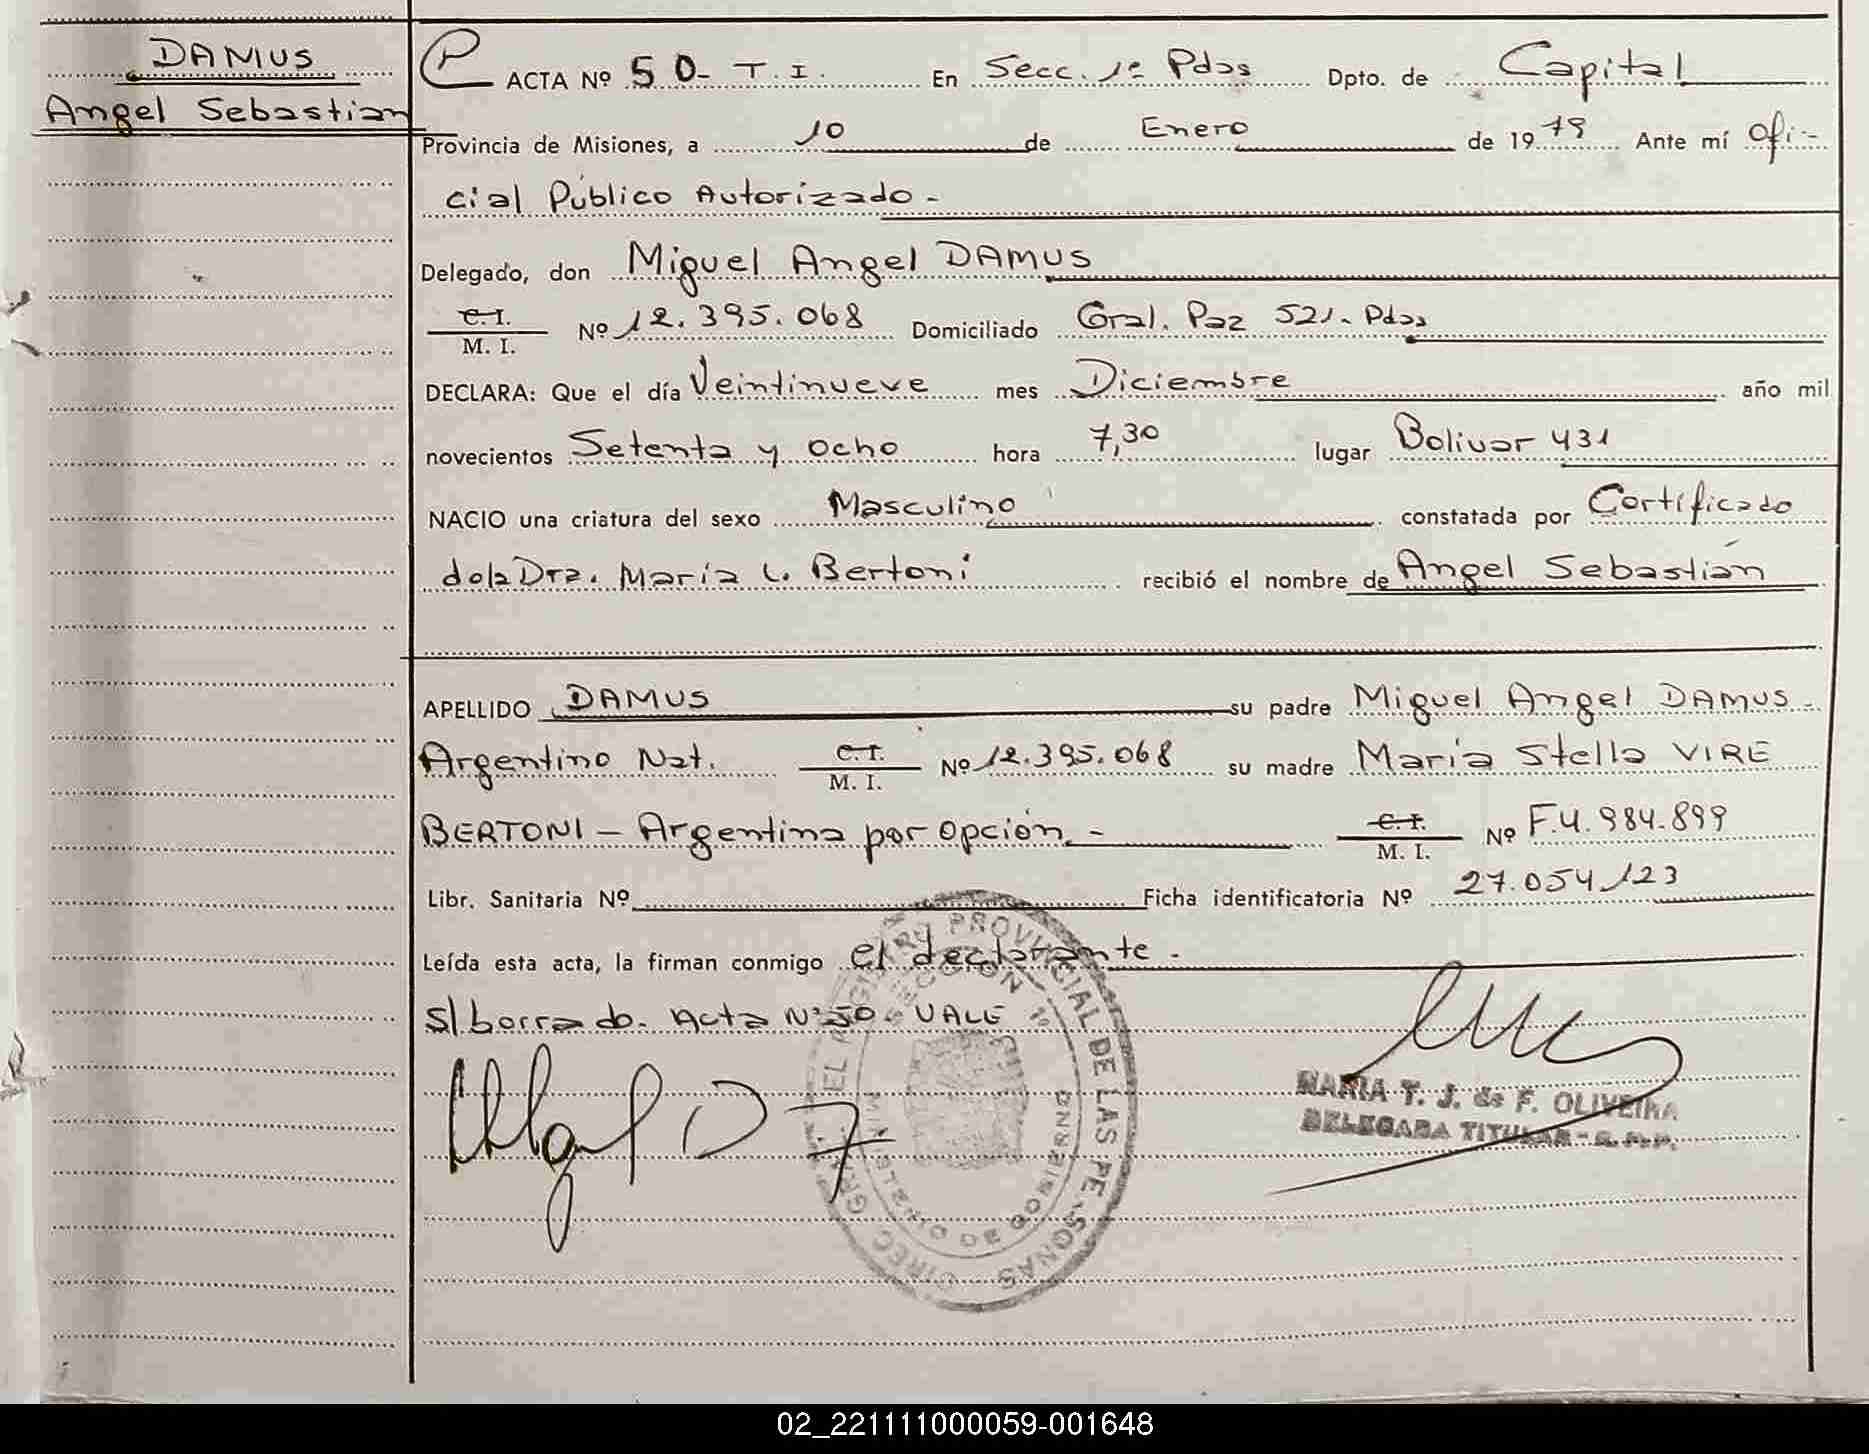 DAMUS
Angel Sebastian
P ACTA Nº 50- T.I. En Secc. 1ª Pdas Dpto. de Capital
Provincia de Misiones, a 10 de Enero de 1979 Ante mí Ofi-
cial Público Autorizado-
Delegado, don Miguel Angel DAMUS
C.I.
M. I. Nº 12.395.068 Domiciliado Gral. Paz 521- Pdas
DECLARA: Que el día Veintinueve mes Diciembre año mil
novecientos Setenta y Ocho hora 7,30 lugar Bolivar 431
NACIO una criatura del sexo Masculino constatada por Certificado
de la Dra. María L. Bertoni recibió el nombre de Angel Sebastián
APELLIDO DAMUS su padre Miguel Angel DAMUS-
Argentino Nat. C.I.
M. I. Nº 12.395.068 su madre María Stella VIRE
BERTONI - Argentina por opción - C.I.
M. I. Nº F.4.984.899
Libr. Sanitaria Nº Ficha identificatoria Nº 27.054,123
Leída esta acta, la firman conmigo el declarante -
S/borrado- Acta Nº 50- VALE
DIREC GRAL DEL REGISTRO PROVINCIAL DE LAS PERSONAS
SECCION 1ª
MINISTERIO DE GOBIERNO
MARIA T. J. de F. OLIVEIRA
DELEGADA TITULAR - R. P. P.
02_221111000059-001648